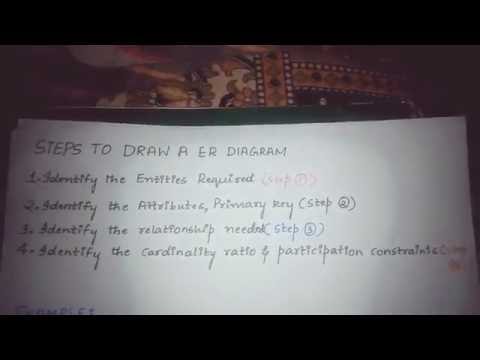 STEPS TO DRAW A ER DIAGRAM
1. Identify the Entities Required (step ①)
2. Identify the Attributes, Primary key (step ②)
3. Identify the relationship needed (step ③)
4. Identify the cardinality ratio & participation constraints (step